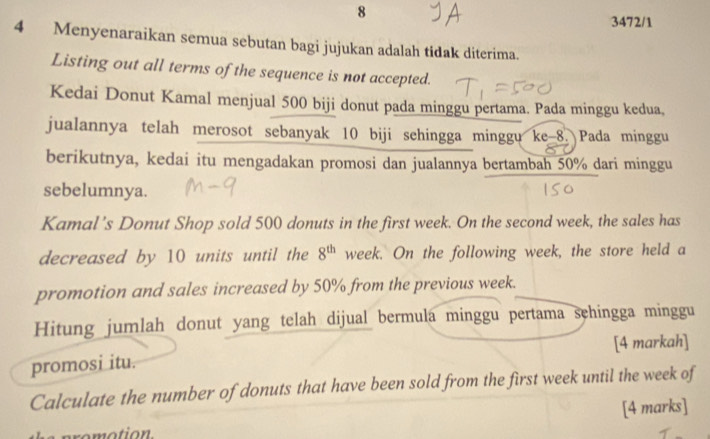 8
JA
3472/1
4 Menyenaraikan semua sebutan bagi jujukan adalah tidak diterima.
Listing out all terms of the sequence is not accepted.
T₁ = 500
Kedai Donut Kamal menjual 500 biji donut pada minggu pertama. Pada minggu kedua,
jualannya telah merosot sebanyak 10 biji sehingga minggu ke-8. Pada minggu
berikutnya, kedai itu mengadakan promosi dan jualannya bertambah 50% dari minggu
sebelumnya. M-9 150
Kamal's Donut Shop sold 500 donuts in the first week. On the second week, the sales has
decreased by 10 units until the 8th week. On the following week, the store held a
promotion and sales increased by 50% from the previous week.
Hitung jumlah donut yang telah dijual bermula minggu pertama sehingga minggu
promosi itu.
[4 markah]
Calculate the number of donuts that have been sold from the first week until the week of
[4 marks]
promotion.